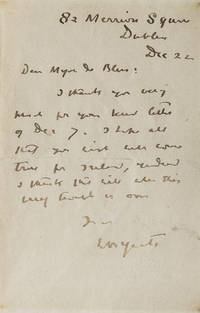 82 Merrion Square
Dublin
Dec 22
Dear Major
I thank you very
much for your kind letter
of Dec 7. I hope all
that you wish will come
true for Ireland,
I think this will when this
is over
Yrs
WB Yeats